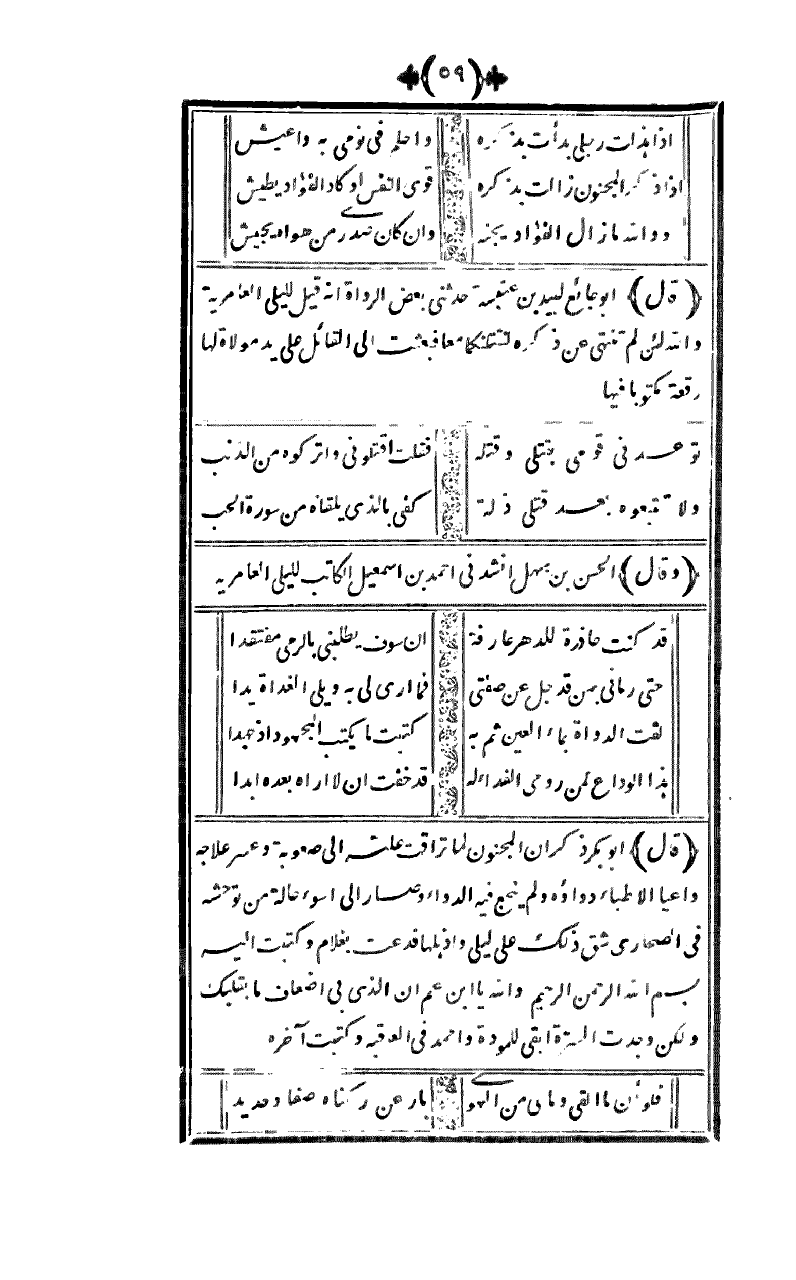 (٥٩)
اذا هذات رجلي بدأت بذكره واحلم في نومي به واعيش
اذا ذكر المجنون زالت بذكره قوى النفس او كاد الفؤاد يطيش
ووالله ما زال الفؤاد يجنه وان كان صدري من هواه يجيش
(قال) ابو لبيد بن عنبسة حدثني بعض الرواة انه قيل لليلى العامرية
والله لئن لم تنتهي عن ذكره لنقتلنكما معا فبعثت الى القائل على يد مولاة لها
رقعة مكتوبا فيها
توعدني قومي بقتلي وقتله فقلت اقتلوني واتركوه من الذنب
ولا تتبعوه بعد قتلي ذلة كفى بالذي يلقاه من سورة الحب
(وقال) الحسن بن سهل انشدني احمد بن اسمعيل الكاتب لليلى العامريه
قد كنت حاذرة للدهر عارفة ان سوف يطلبني بالرمي مفتقدا
حتى رماني بمن قد جل عن صفتي فما ارى لي به ويلي الغداة يدا
لقت الدواة بماء العين ثم به كتبت ما يكتب المجهود اذ جهدا
بذا الوداع لمن روحي الفداء له قد خفت ان لا اراه بعده ابدا
(قال) ابو بكر ذكر ان المجنون لما تراقت علته الى صعوبة وعسر علاجه
واعيا الاطباء دواؤه ولم ينجع فيه الدواء وصار الى اسوء حالة من توحشه
في الصحارى شق ذلك على ليلى واذهلها فدعت بغلام وكتبت اليه
بسم الله الرحمن الرحيم والله يا ابن عم ان الذي بي اضعاف ما بقلبك
ولكن وجدت السترة ابقى للمودة واحمد في العاقبه وكتبت آخره
فلو أن ما القى وما بي من الهوى بارعن ركناه صفا وحديد